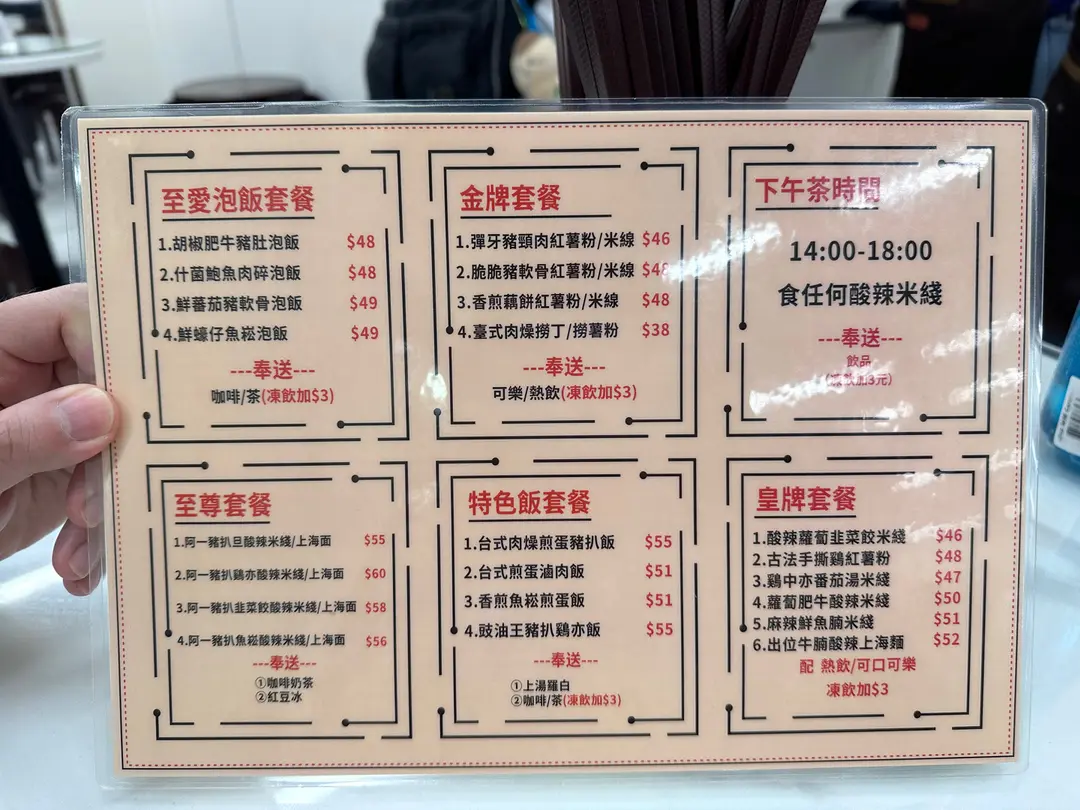 至愛泡飯套餐
1.胡椒肥牛豬肚泡飯 $48
2.什菌鮑魚肉碎泡飯 $48
3.鮮蕃茄豬軟骨泡飯 $49
4.鮮蠔仔魚崧泡飯 $49
---奉送---
咖啡/茶(凍飲加$3)
金牌套餐
1.彈牙豬頸肉紅薯粉/米線 $46
2.脆脆豬軟骨紅薯粉/米線 $48
3.香煎藕餅紅薯粉/米線 $48
4.臺式肉燥撈丁/撈薯粉 $38
---奉送---
可樂/熱飲(凍飲加$3)
下午茶時間
14:00-18:00
食任何酸辣米綫
---奉送---
飲品
(凍飲加3元)
至尊套餐
1.阿一豬扒旦酸辣米綫/上海面 $55
2.阿一豬扒鷄亦酸辣米綫/上海面 $60
3.阿一豬扒韭菜餃酸辣米綫/上海面 $58
4.阿一豬扒魚崧酸辣米綫/上海面 $56
---奉送---
①咖啡奶茶
②紅豆冰
特色飯套餐
1.台式肉燥煎蛋豬扒飯 $55
2.台式煎蛋滷肉飯 $51
3.香煎魚崧煎蛋飯 $51
4.豉油王豬扒鷄亦飯 $55
---奉送---
①上湯羅白
②咖啡/茶(凍飲加$3)
皇牌套餐
1.酸辣蘿蔔韭菜餃米綫 $46
2.古法手撕鷄紅薯粉 $48
3.鷄中亦番茄湯米綫 $47
4.蘿蔔肥牛酸辣米綫 $50
5.麻辣鮮魚腩米綫 $51
6.出位牛腩酸辣上海麵 $52
配 熱飲/可口可樂
凍飲加$3